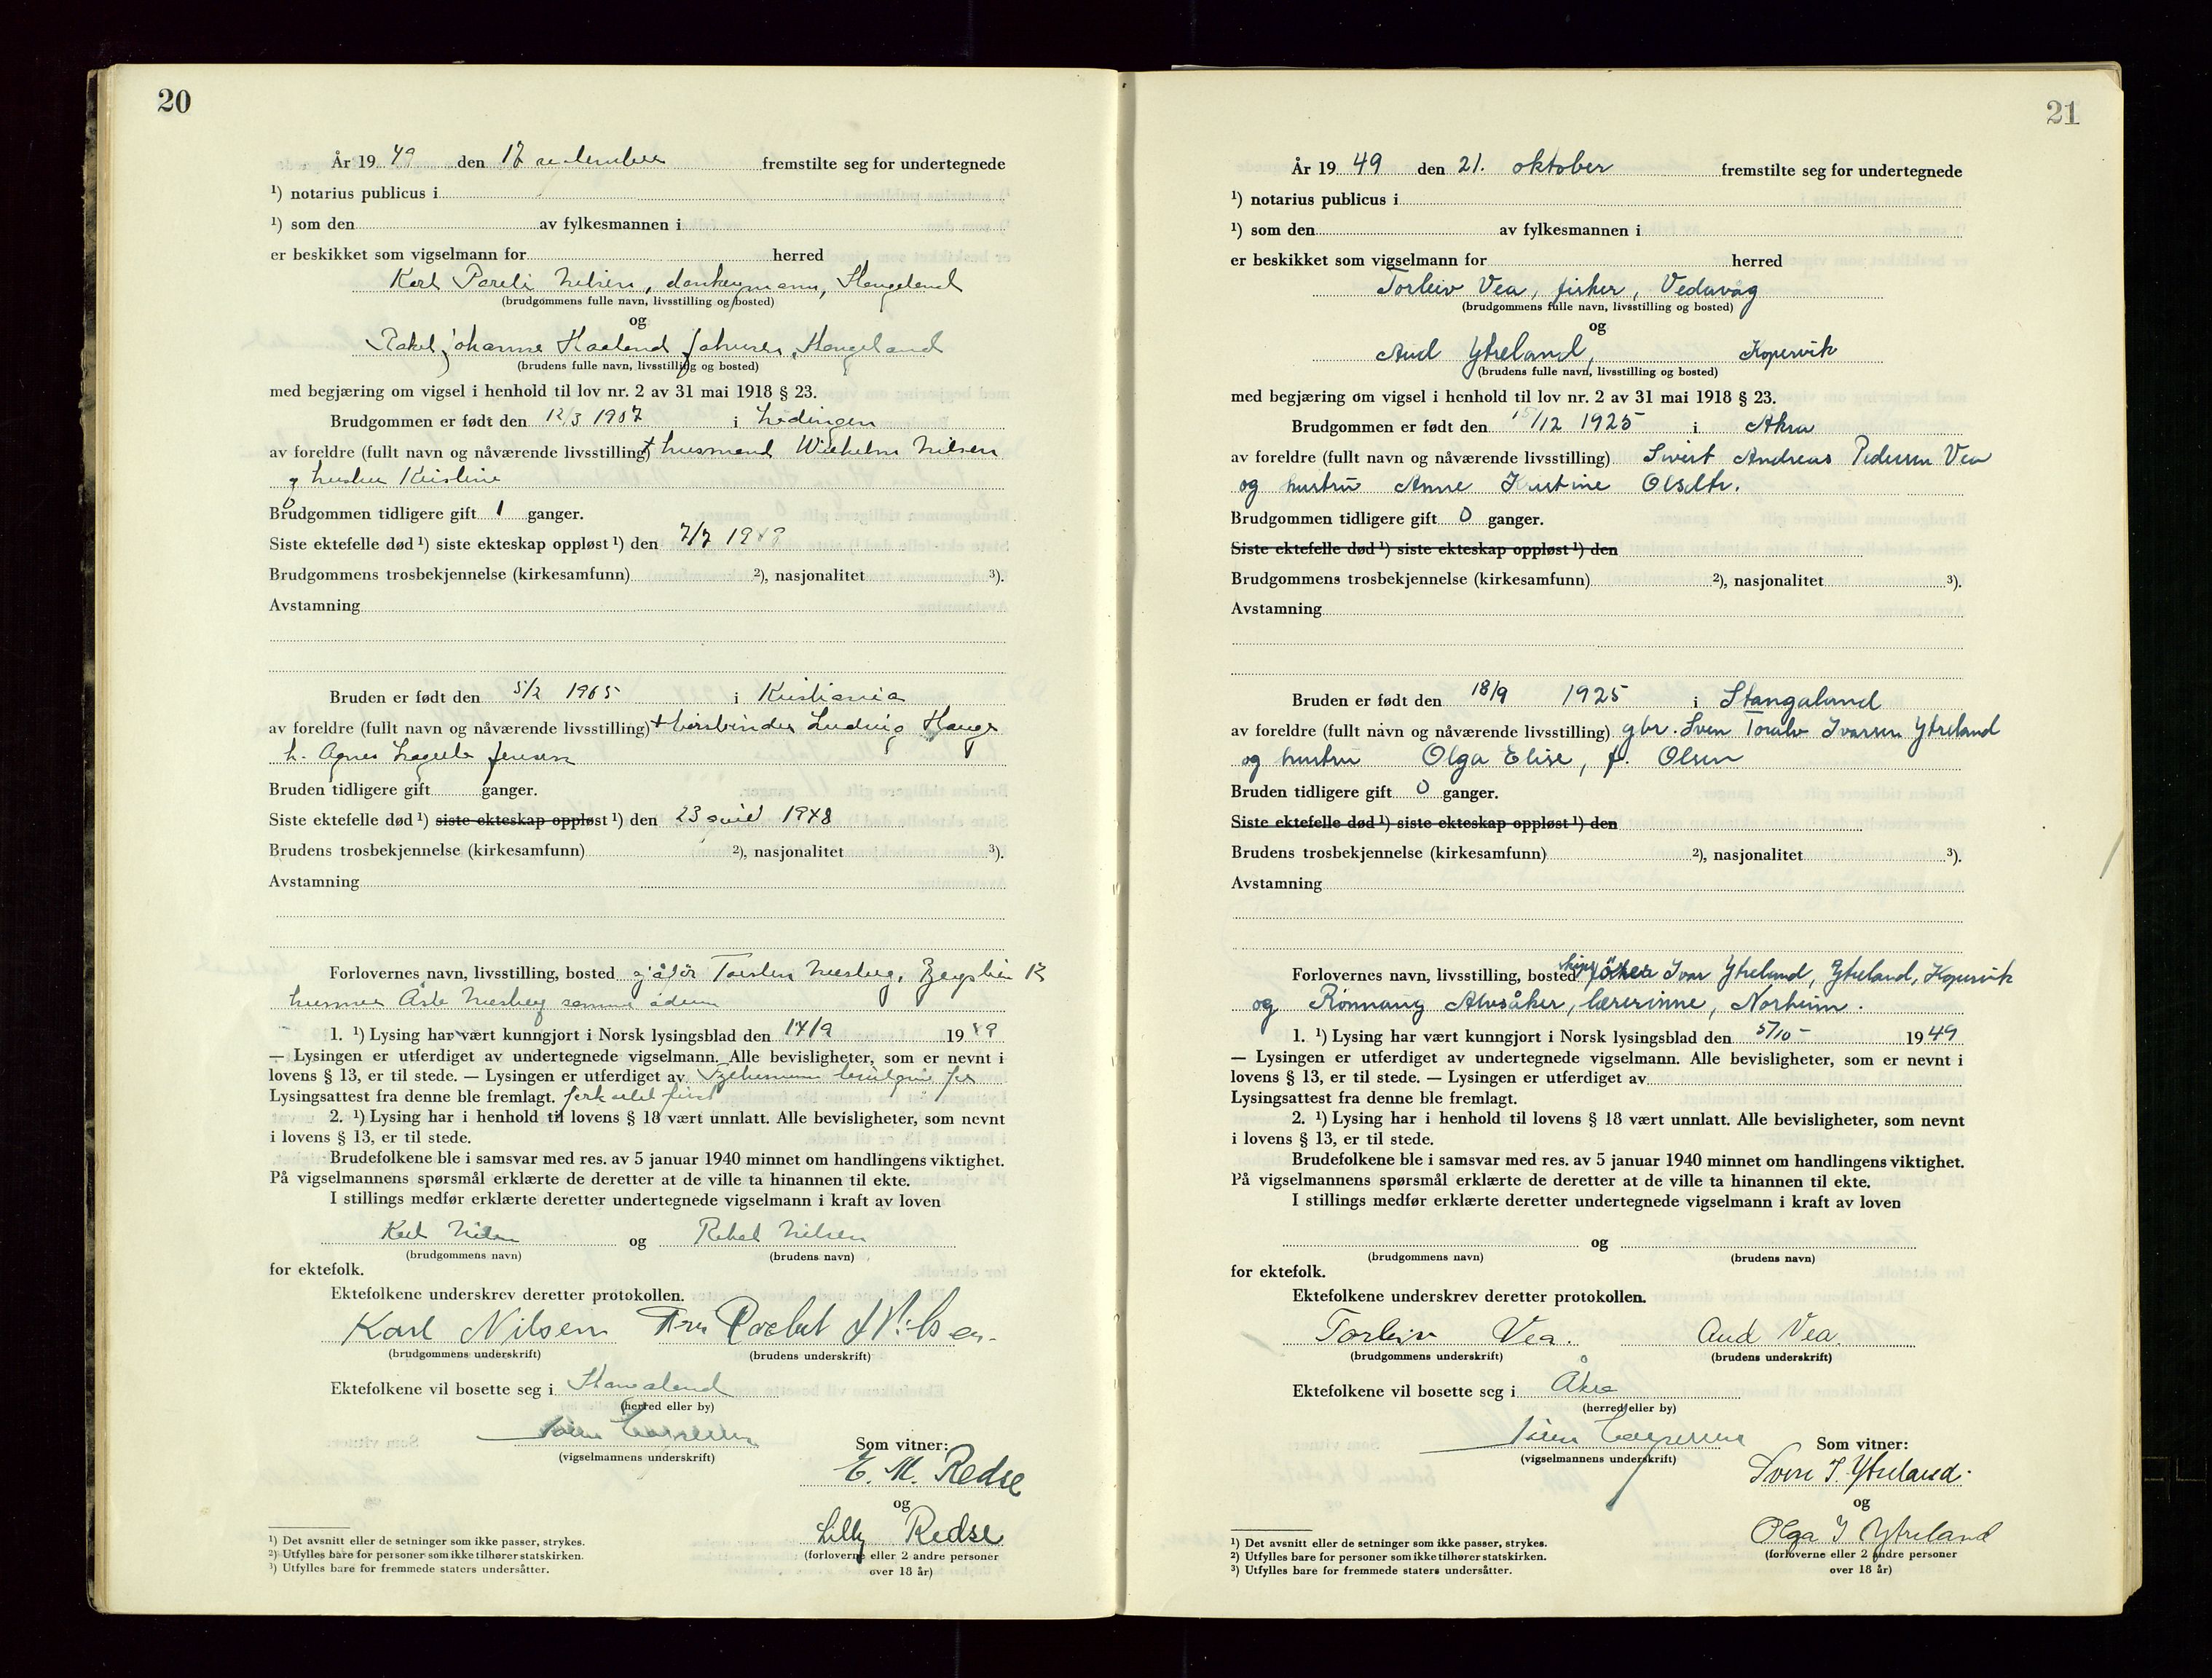 20
År 1949 den 17 september fremstilte seg for undertegnede
¹) notarius publicus i
¹) som den av fylkesmannen i
er beskikket som vigselmann for herred
Karl Pareli Nilsen, donkeymann,
(brudgommens fulle navn, livsstilling og bosted)
og
Rakel Johanne Haaland Johnsen,
(brudens fulle navn, livsstilling og bosted)
med begjæring om vigsel i henhold til lov nr. 2 av 31 mai 1918 § 23.
Brudgommen er født den 12/3 1907 i Lødingen
av foreldre (fullt navn og nåværende livsstilling) + husmand Wilhelm Nilsen
og hustru Kristine
Brudgommen tidligere gift 1 ganger.
Siste ektefelle død ¹) siste ekteskap oppløst ¹) den 7/7 1948
Brudgommens trosbekjennelse (kirkesamfunn) ²), nasjonalitet ³).
Avstamning
Bruden er født den 5/2 1905 i Kristiania
av foreldre (fullt navn og nåværende livsstilling) + børstbinder Ludvig Hauge
h. Agnes Jensen
Bruden tidligere gift ganger.
Siste ektefelle død ¹) siste ekteskap oppløst ¹) den 23 1948
Brudens trosbekjennelse (kirkesamfunn) ²), nasjonalitet ³).
Avstamning
Forlovernes navn, livsstilling, bosted Torsten
husmor samme
1. ¹) Lysing har vært kunngjort i Norsk lysingsblad den 14/9 1949
— Lysingen er utferdiget av undertegnede vigselmann. Alle bevisligheter, som er nevnt i
lovens § 13, er til stede. — Lysingen er utferdiget av
Lysingsattest fra denne ble fremlagt.
2. ¹) Lysing har i henhold til lovens § 18 vært unnlatt. Alle bevisligheter, som nevnt
i lovens § 13, er til stede.
Brudefolkene ble i samsvar med res. av 5 januar 1940 minnet om handlingens viktighet.
På vigselmannens spørsmål erklærte de deretter at de ville ta hinannen til ekte.
I stillings medfør erklærte deretter undertegnede vigselmann i kraft av loven
Karl Nilsen og Rakel Nilsen
(brudgommens navn) (brudens navn)
for ektefolk.
Ektefolkene underskrev deretter protokollen.
Karl Nilsen Fru Rachel Nilsen
(brudgommens underskrift) (brudens underskrift)
Ektefolkene vil bosette seg i
(herred eller by)
(vigselmannens underskrift)
Som vitner:
E. M. Redse
og
Lilly Redse
(forloverne eller 2 andre personer
over 18 år)
¹) Det avsnitt eller de setninger som ikke passer, strykes.
²) Utfylles bare for personer som ikke tilhører statskirken.
³) Utfylles bare for fremmede staters undersåtter.
21
År 1949 den 21. oktober fremstilte seg for undertegnede
¹) notarius publicus i
¹) som den av fylkesmannen i
er beskikket som vigselmann for herred
Torleiv Vea, fisker, Vedavåg
(brudgommens fulle navn, livsstilling og bosted)
og
Aud Ytreland, Kopervik
(brudens fulle navn, livsstilling og bosted)
med begjæring om vigsel i henhold til lov nr. 2 av 31 mai 1918 § 23.
Brudgommen er født den 15/12 1925 i Åkra
av foreldre (fullt navn og nåværende livsstilling) Sivert Andreas Pedersen Vea
og hustru Anne Kristine Olsdtr.
Brudgommen tidligere gift 0 ganger.
Siste ektefelle død ¹) siste ekteskap oppløst ¹) den
Brudgommens trosbekjennelse (kirkesamfunn) ²), nasjonalitet ³).
Avstamning
Bruden er født den 18/9 1925 i Stangaland
av foreldre (fullt navn og nåværende livsstilling) gbr. Sven Toralv Ivarsen Ytreland
og hustru Olga Elise, f. Olsen
Bruden tidligere gift 0 ganger.
Siste ektefelle død ¹) siste ekteskap oppløst ¹) den
Brudens trosbekjennelse (kirkesamfunn) ²), nasjonalitet ³).
Avstamning
Forlovernes navn, livsstilling, bosted Ivar Ytreland, Ytreland, Kopervik
og Rønnaug Alvsåker, lærerinne, Norheim.
1. ¹) Lysing har vært kunngjort i Norsk lysingsblad den 5/10 - 1949
— Lysingen er utferdiget av undertegnede vigselmann. Alle bevisligheter, som er nevnt i
lovens § 13, er til stede. — Lysingen er utferdiget av
Lysingsattest fra denne ble fremlagt.
2. ¹) Lysing har i henhold til lovens § 18 vært unnlatt. Alle bevisligheter, som nevnt
i lovens § 13, er til stede.
Brudefolkene ble i samsvar med res. av 5 januar 1940 minnet om handlingens viktighet.
På vigselmannens spørsmål erklærte de deretter at de ville ta hinannen til ekte.
I stillings medfør erklærte deretter undertegnede vigselmann i kraft av loven
og
(brudgommens navn) (brudens navn)
for ektefolk.
Ektefolkene underskrev deretter protokollen.
Torleiv Vea. Aud Vea.
(brudgommens underskrift) (brudens underskrift)
Ektefolkene vil bosette seg i Åkra
(herred eller by)
(vigselmannens underskrift)
Som vitner:
Sven T. Ytreland.
og
Olga I Ytreland
(forloverne eller 2 andre personer
over 18 år)
¹) Det avsnitt eller de setninger som ikke passer, strykes.
²) Utfylles bare for personer som ikke tilhører statskirken.
³) Utfylles bare for fremmede staters undersåtter.